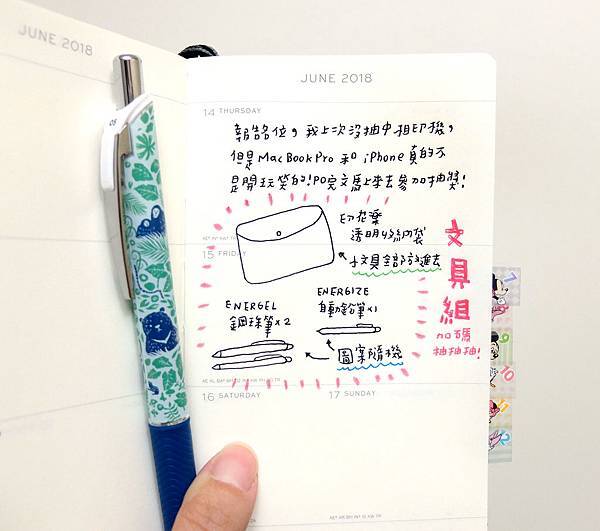 JUNE 2018
JUNE 2018
14 THURSDAY
報告各位，我上次沒抽中相印機，
但是MacBook Pro 和 iPhone真的不
是開玩笑的！PO完文馬上來去參加抽獎！
印花樂
透明收納袋
文具全部放進去
15 FRIDAY
文具組
加碼
抽抽抽！
ENERGEL
鋼珠筆×2
ENERGIZE
自動鉛筆×1
圖案隨機
16 SATURDAY
17 SUNDAY
05
7
9
10
11
12